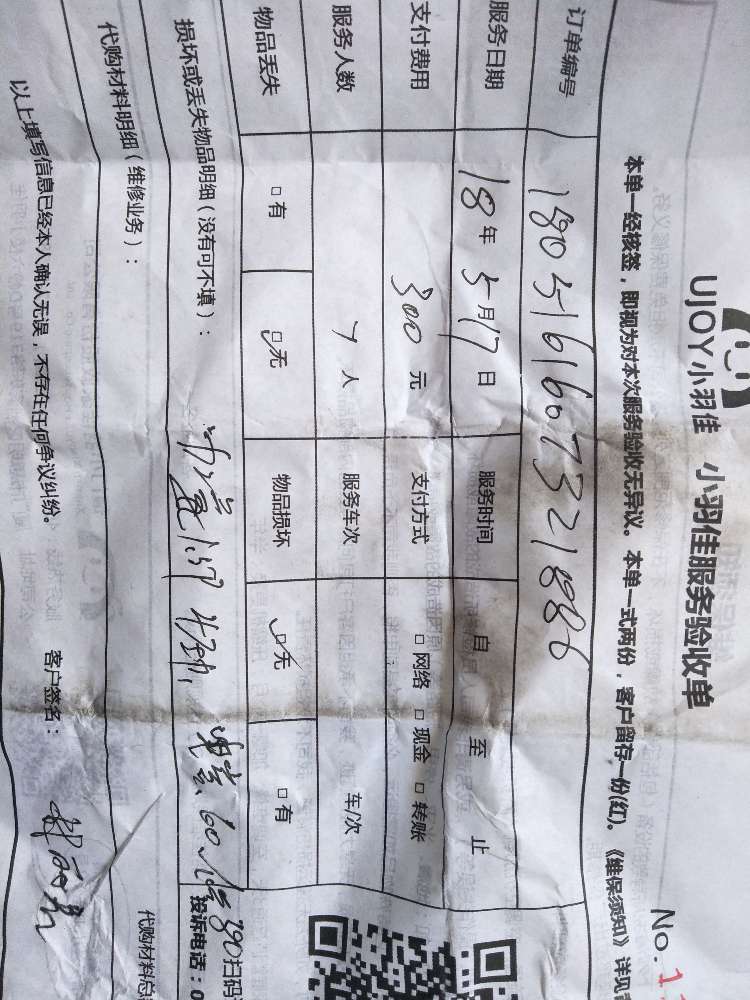 UJOY小羽佳 小羽佳服务验收单
No. 1
本单一经核签，即视为对本次服务验收无异议。本单一式两份，客户留存一份(红)。《维保须知》详见
订单编号
服务日期 18年5月17日 服务时间 自 至 止
支付费用 300元 支付方式 □网络 □现金 □转账
服务人数 人 服务车次 车/次
物品丢失 □有 □无 物品损坏 □无 □有
损坏或丢失物品明细（没有可不填）：
扫码
投诉电话：0
代购材料明细（维修业务）：
代购材料总
以上填写信息已经本人确认无误，不存在任何争议纠纷。 客户签名：